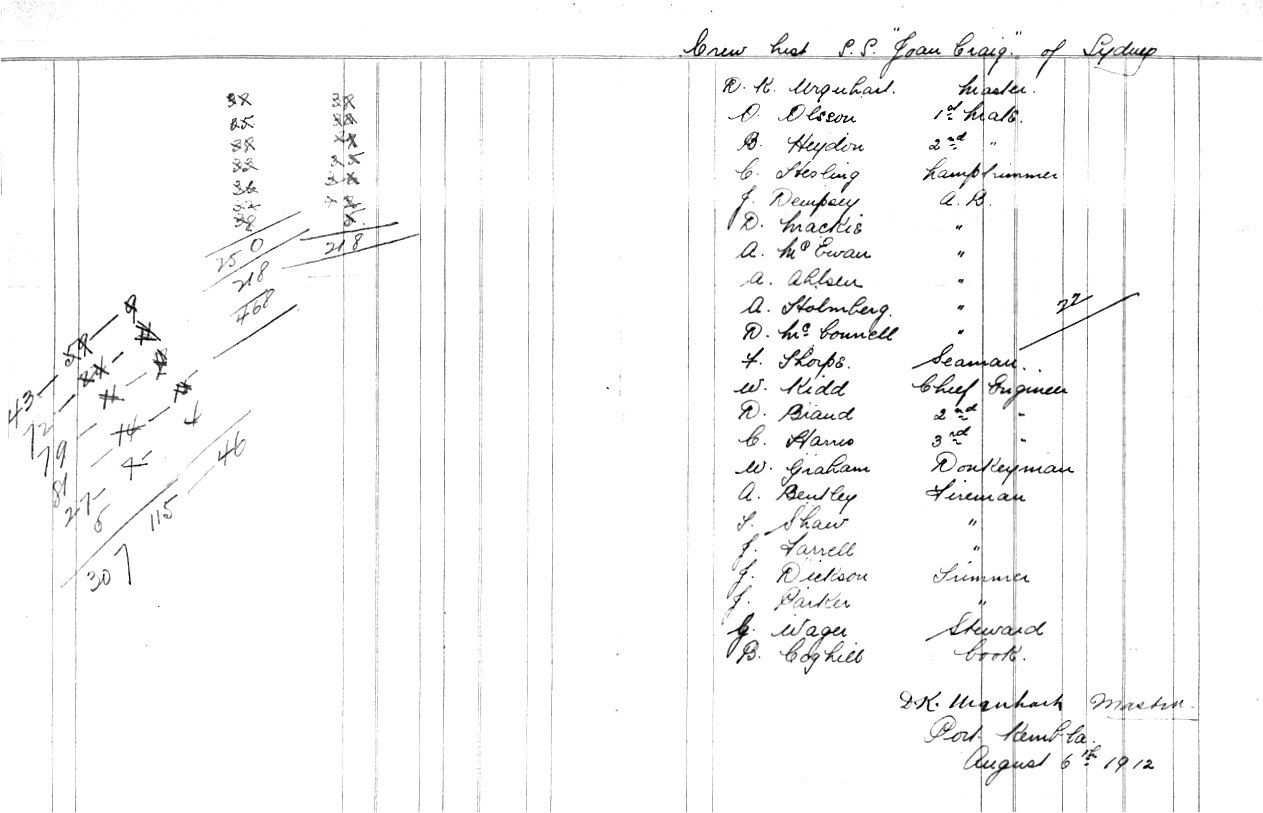 Crew List S.S. "Joan Craig" of Sydney
D. K. Urquhart. Master.
O. Olsson 1st Mate.
B. Heydon 2nd "
C. Hesling Lamptrimmer
J. Dempsey A.B.
D. Mackie "
A. McEwan "
A. Ahlsen "
A. Holmberg. "
D. McConnell "
F. Thorpe. Seaman..
W. Kidd Chief Engineer
D. Biand 2nd "
C. Harris 3rd "
W. Graham Donkeyman
A. Bentley Fireman
T. Shaw "
J. Farrell "
J. Dickson Trimmer
J. Parker "
G. Wager Steward
B. Coghill Cook.
22
D.K. Urquhart Master.
Port Kembla.
August 6th 1912
250
218
218
468
43
72
79
81
27
5
307
115
46